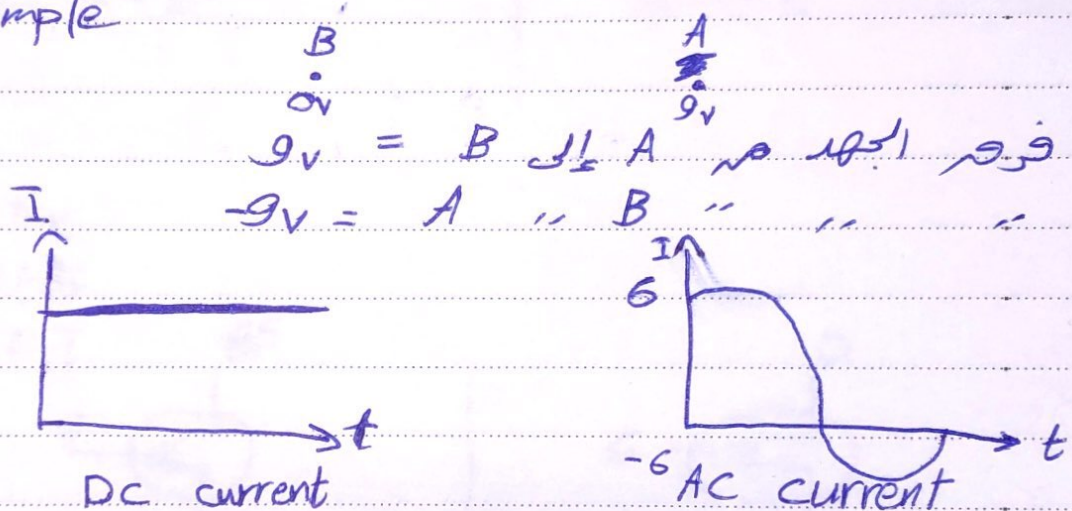 mple
B A
0v 9v
فرق الجهد من A إلى B = 9v
" " " B " A = -9v
I I
6
t t
-6
DC current AC current